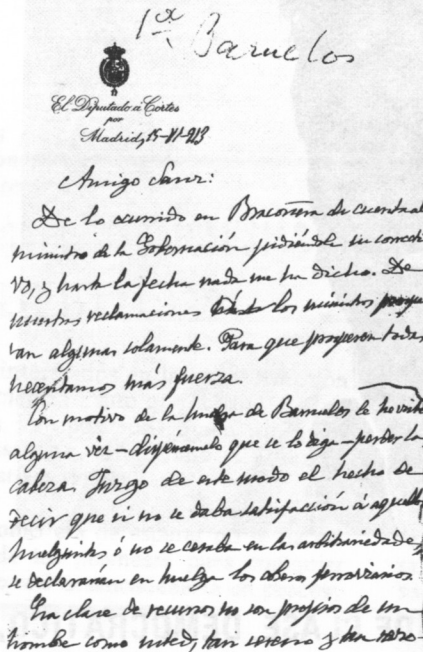 1ª Baruelos
El Diputado a Cortes
por
Madrid, 15-XI-913
Amigo Sanz:
De lo ocurrido en di cuenta al
ministro de la Gobernación pidiéndole un correcti
vo, y hasta la fecha nada me ha dicho. De
nuestras reclamaciones los ministros
algunas solamente. Para que prosperen todas
necesitamos más fuerza.
Con motivo de la huelga de Barruelos le he visto
alguna vez – dispénsemelo que se lo diga – perder la
cabeza. Juzgo de este modo el hecho de
decir que si no se daba satisfacción á aquellos
huelguistas ó no se cesaba en las arbitrariedades,
se declararían en huelga los obreros ferroviarios.
Esa clase de recursos no son propios de un
hombre como usted, tan sereno y tan